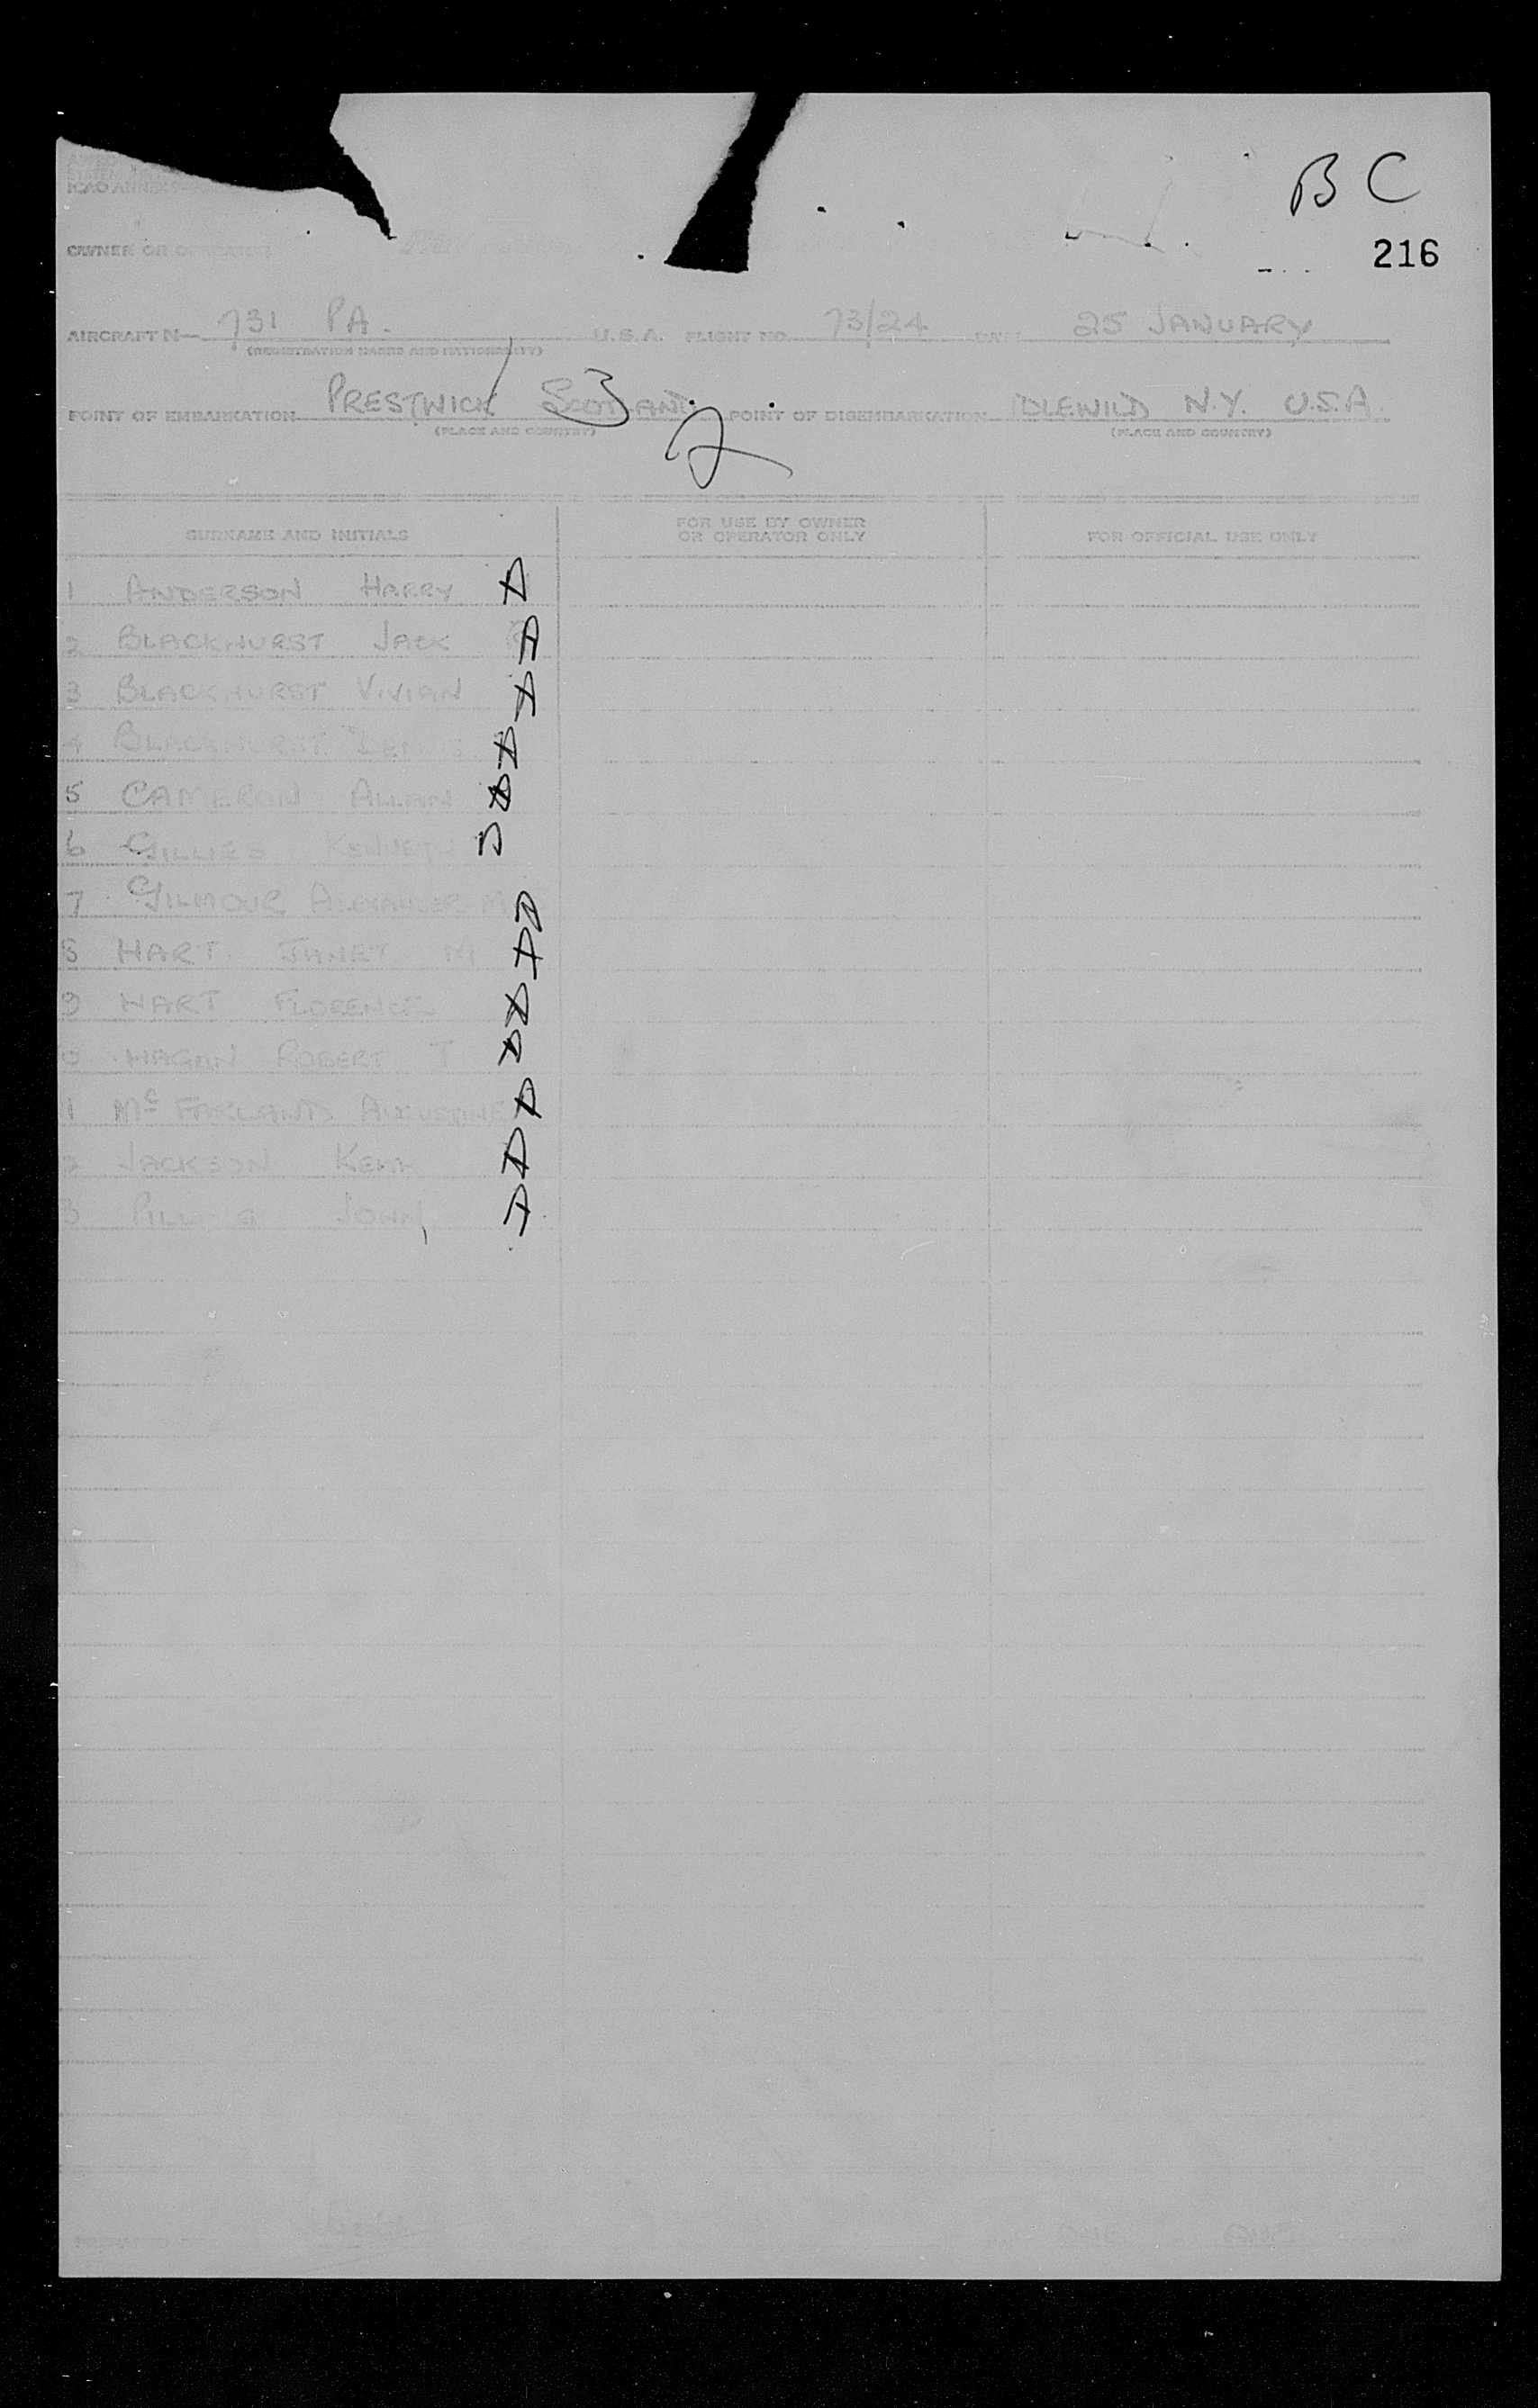 B C
216
ICAO ANNEX
OWNER OR OPERATOR
AIRCRAFT N— 731 PA. U.S.A. FLIGHT NO. 73/24 DATE 25 JANUARY
(REGISTRATION MARKS AND NATIONALITY)
POINT OF EMBARKATION PRESTWICK SCOTLAND POINT OF DISEMBARKATION IDLEWILD N.Y. U.S.A.
(PLACE AND COUNTRY) (PLACE AND COUNTRY)
3
2
SURNAME AND INITIALS FOR USE BY OWNER OR OPERATOR ONLY FOR OFFICIAL USE ONLY
1 ANDERSON HARRY D
2 BLACKHURST JACK D
3 BLACKHURST VIVIAN D
4 BLACKHURST D
5 CAMERON ALLAN D
6 GILLIES KENNETH D
7 GILMOUR ALEXANDER M D
8 HART JANET M D
9 HART FLORENCE D
0 HAGAN ROBERT T D
1 McFARLAND D
2 JACKSON KEITH D
3 JOHN D